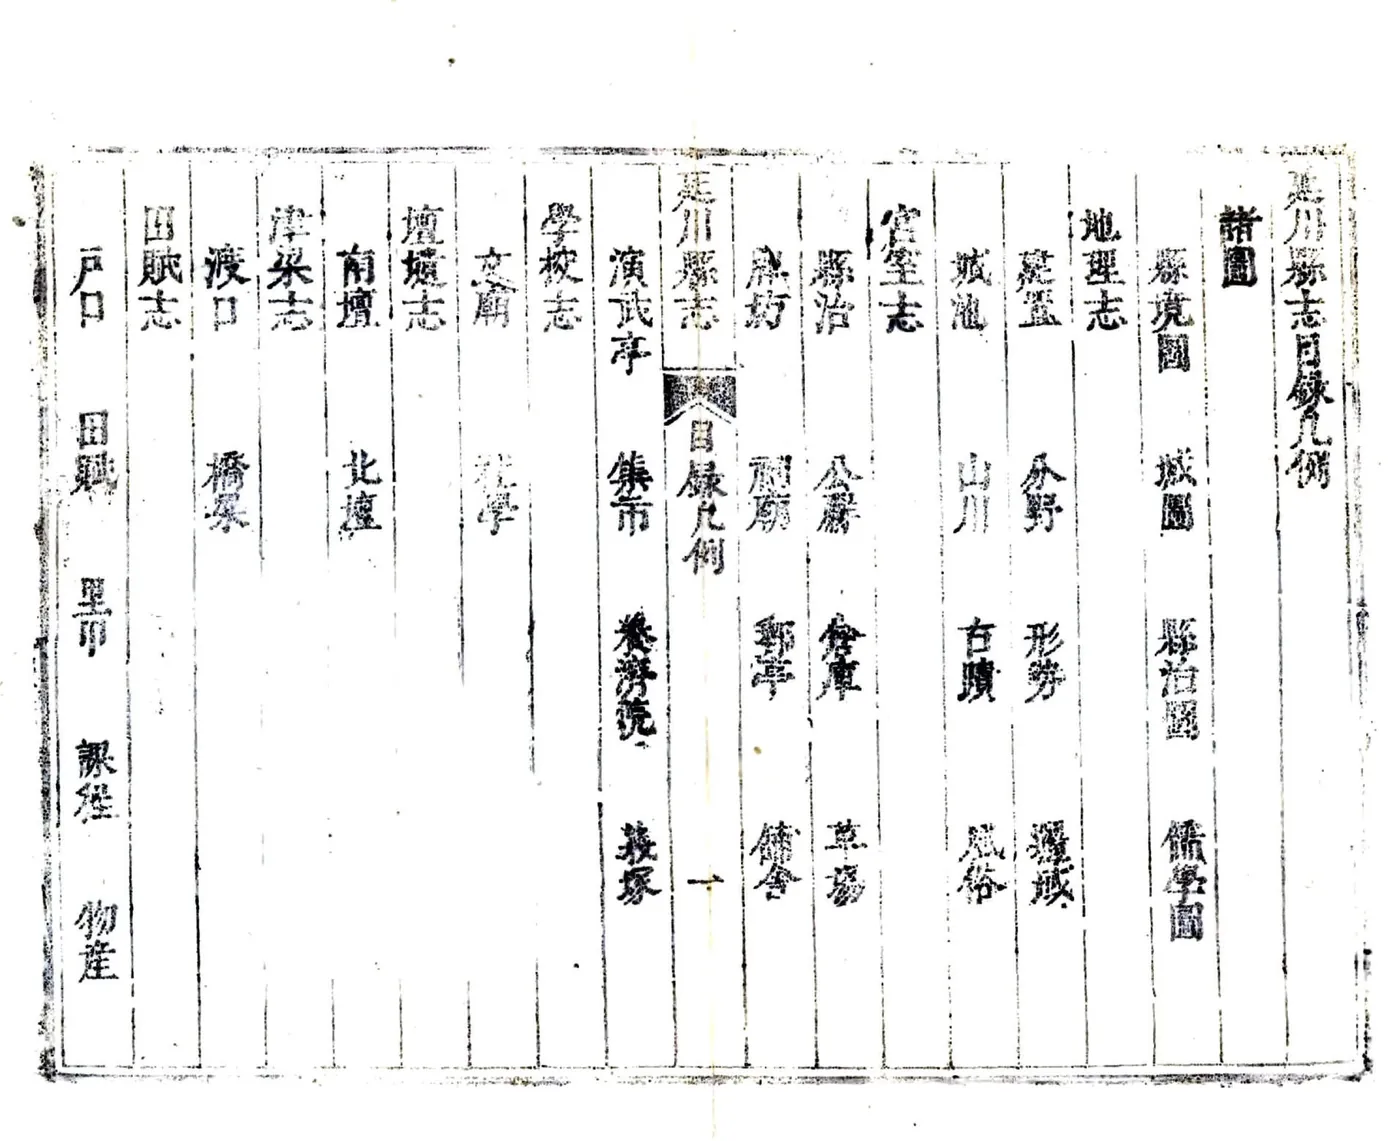 延川縣志目錄凡例
諸圖
縣境圖 城圖 縣治圖 儒學圖
地理志
建置 分野 形勢 疆域
城池 山川 古蹟 風俗
宮室志
縣治 公廨 倉庫 草場
牌坊 祠廟 郵亭 鋪舍
延川縣志 目錄凡例 一
演武亭 集市 養濟院 義塚
學校志
文廟 社學
壇壝志
南壇 北壇
津梁志
渡口 橋梁
田賦志
戶口 田賦 里甲 課程 物產